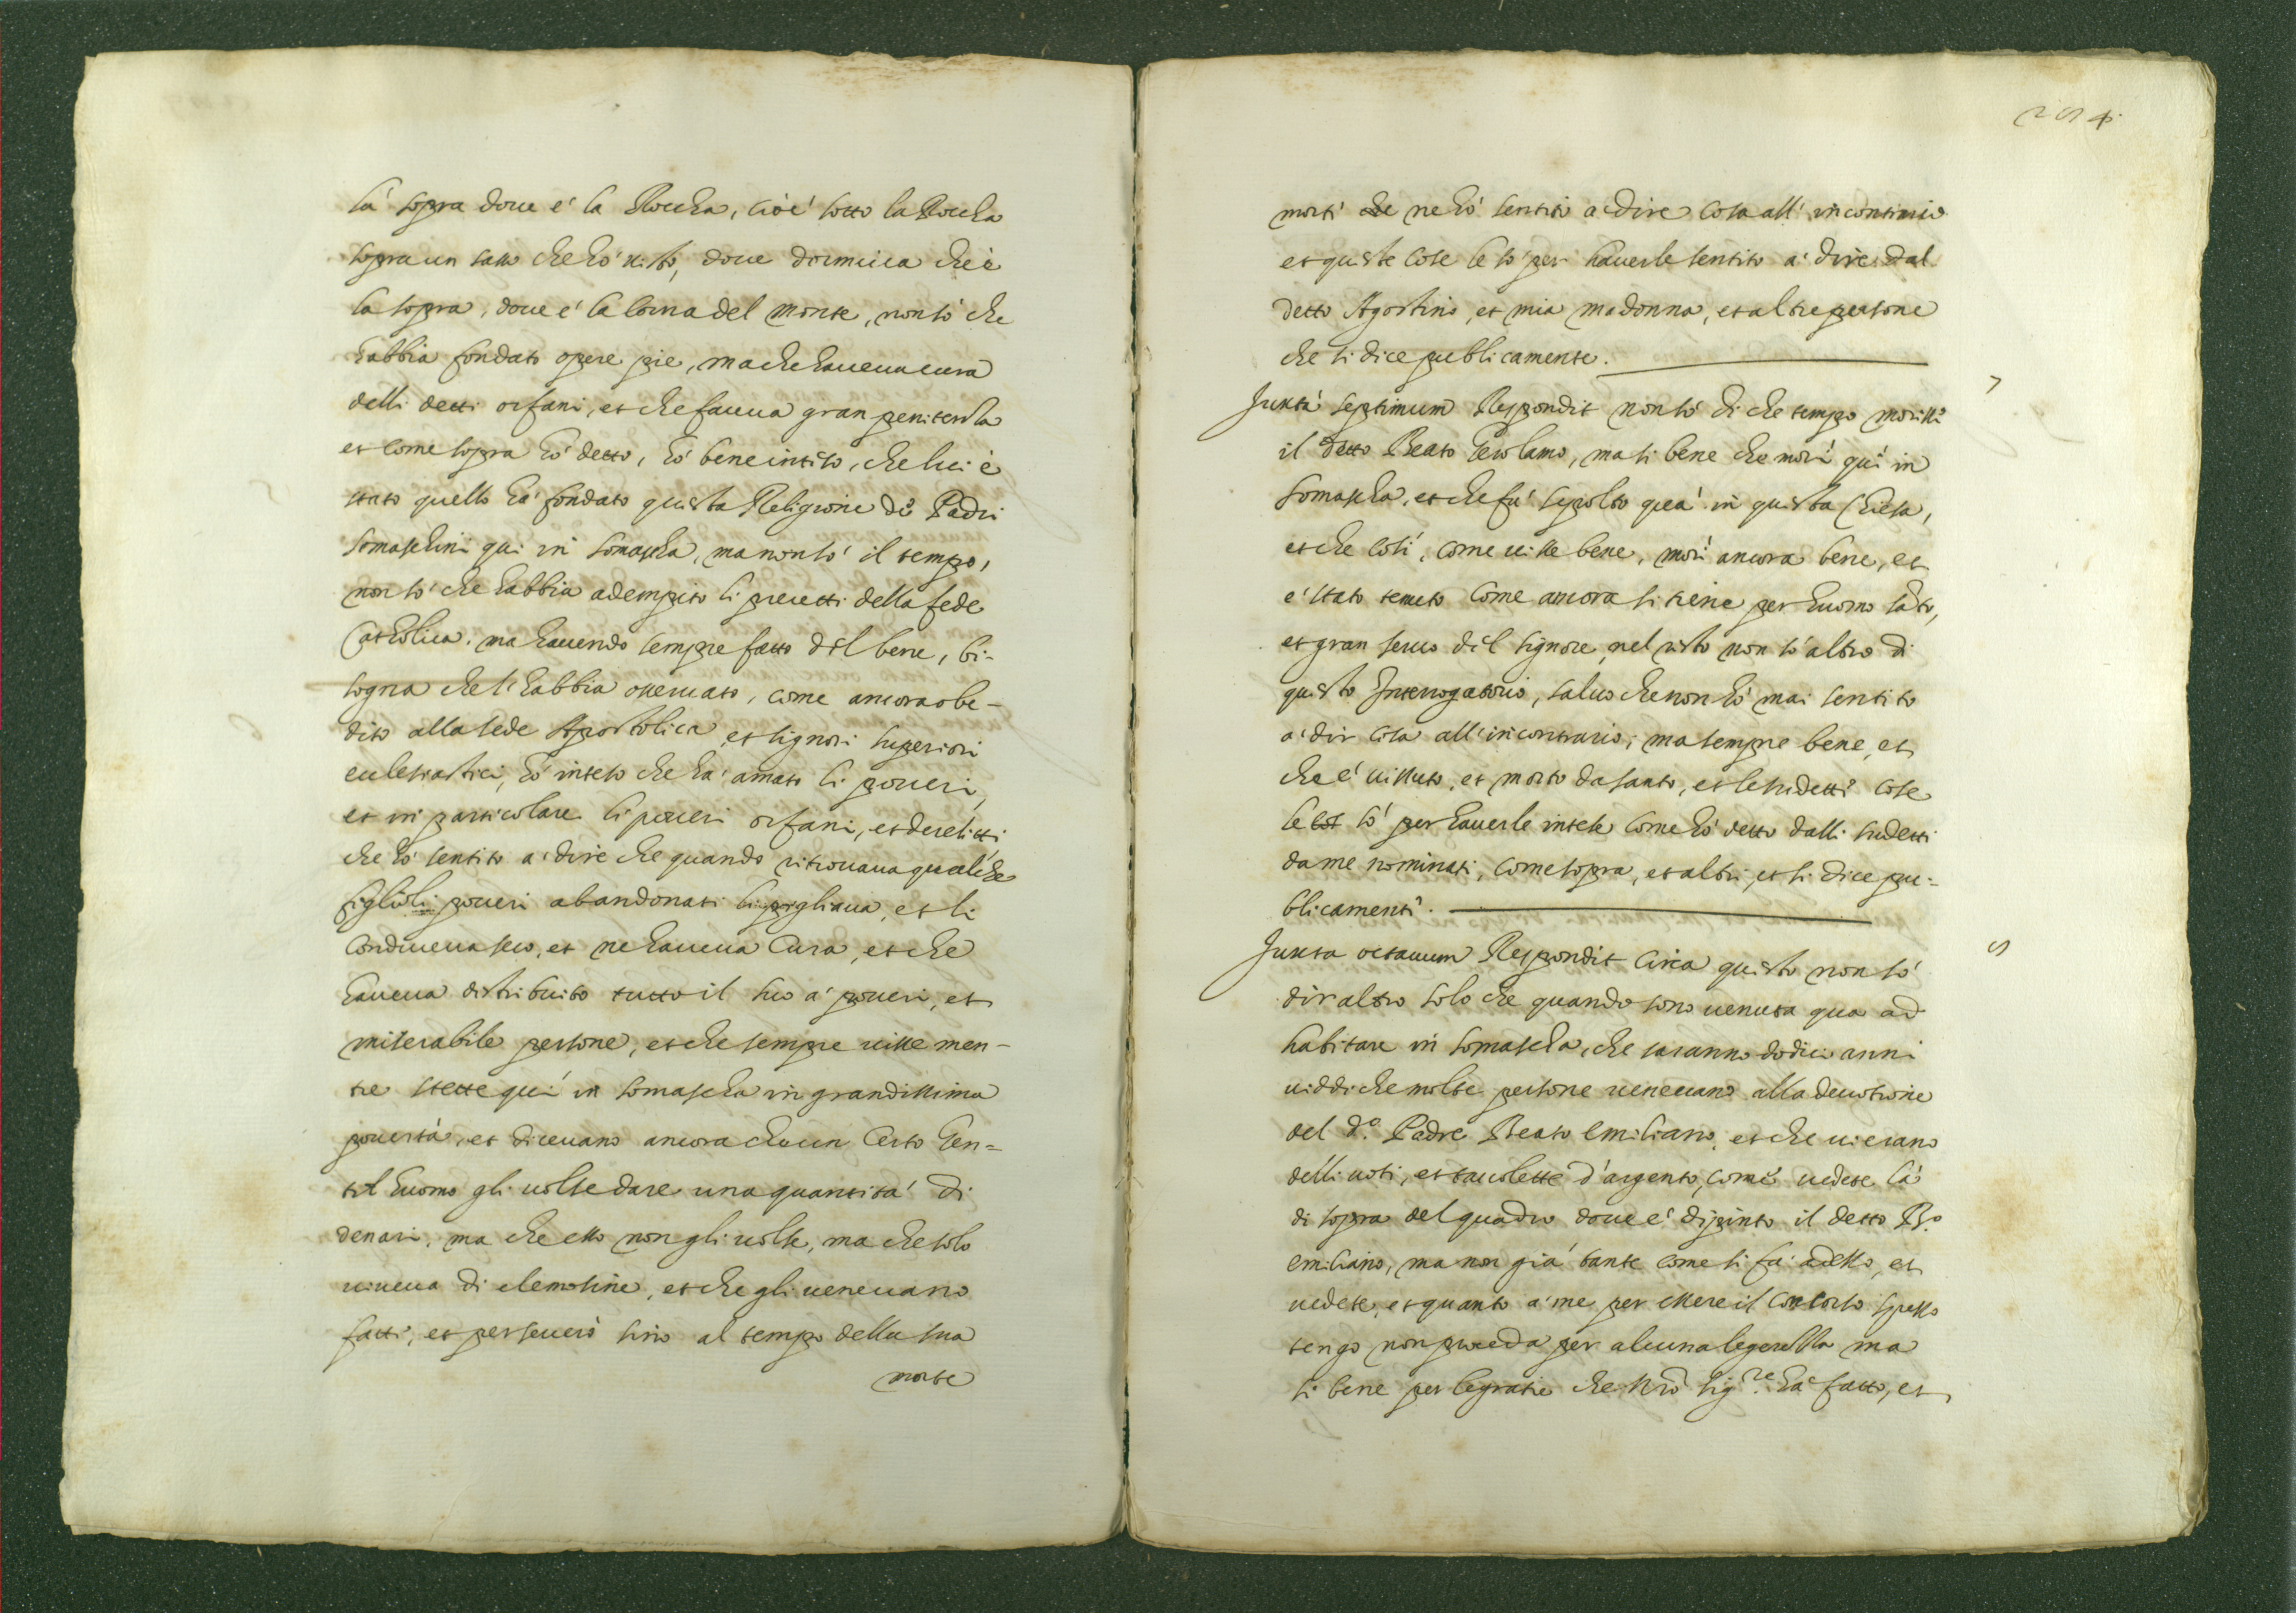 là sopra doue e' la Roccha, cioè sotto la Roccha
sopra un sasso che hò uisto, doue dormiua che è
la sopra, doue e' la cima del monte, non sò che
habbia fondato opere pie, ma che haueua cura
delli detti orfani, et che faceua gran penitenza
et come sopra hò detto, hò bene inteso, che lui è
stato quello hà fondato questa Religione de Padri
Somaschini qui in Somascha, ma non sò il tempo,
non sò che habbia adempito li precetti della fede
Catholica. ma hauendo sempre fatto del bene, bi-
sogna che li habbia osseruato, come ancora obe-
dito alla sede Apostolica et signori superiori
eclesiastici, hò inteso che hà amato li poueri,
et in particolare li poueri orfani, et derelitti,
che hò sentito a' dire che quando ritrouaua qualche
figlioli poueri abandonati li pigliaua, et li
conduceua seco, et ne haueua cura, et che
haueua distribuito tutto il suo a' poueri, et
miserabile persone, et che sempre uisse men-
tre stette quì in Somascha in grandissima
pouertà, et diceuano ancora che un certo gen=
til huomo gli uolse dare una quantità di
denari, ma che esso non gli uolse, ma che solo
uiueua di elemosine, et che gli ueneuano
fatte, et perseuerò sino al tempo della sua
morte
254
morte che ne hò sentito a dire cosa all' incontrario
et queste cose le sò per hauerle sentito a' dire dal
detto Agostino, et mia madonna, et altre persone
che si dice publicamente.
7
Juxta septimum Respondit non sò di che tempo morisse
il detto Beato Gerolamo, ma si bene che morì quì in
Somascha, et che fù sepolto quà in questa Chiesa,
et che così, come uisse bene, morì ancora bene, et
e' stato tenuto come ancora si tiene per huomo santo,
et gran seruo del signore, nel resto non sò altro di
questo Interrogatorio, saluo che non hò mai sentito
a' dir cosa all' incontrario; ma sempre bene, et
che e' uissuto, et morto da santo, et le sudette cose
le cos sò per hauerle intese come hò detto dalli sudetti
da me nominati, come sopra, et altri, et si dice pu=
blicamente.
8
Juxta octauum Respondit circa questo non sò
dir altro solo che quando sono uenuta qua ad
habitare in Somascha, che saranno dodici anni
uiddi che molte persone ueneuano alla deuotione
del d.o Padre Beato Emiliano, et che ui erano
delli uoti, et tauolette d'argento, come uedete là
di sopra del quadro doue e' dipinto il detto B.o
Emiliano, ma non già tante come si fa adesso, et
uedete, et quanto a' me per essere il concorso spesso
tengo non proceda per alcuna legerezza ma
si bene per le gratie che Nro Sig.re hà fatto, et